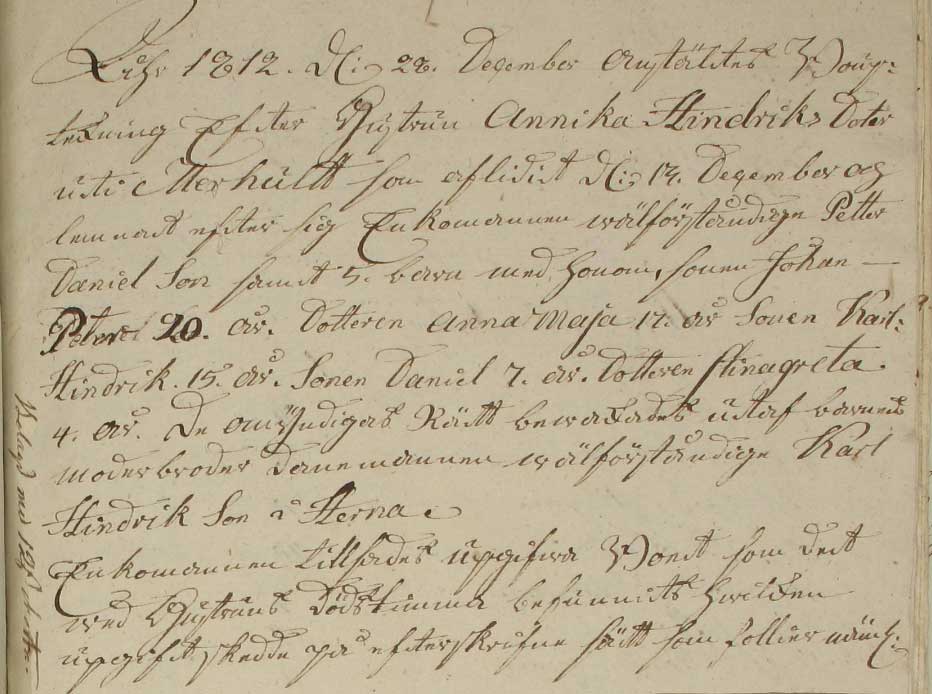 Åhr 1812. d: 28. December anstältes Boup-
tekning Efter Hustrun Annika Hindriks Doter
uti Etterhultt som aflidit d: 14. December og
lemnat efter sig Enkomannen wälförståndige Petter
Daniel Son samt 5. barn med honom, sonen Johan
Peter 20. år. Dotteren Anna Maja 17. år Sonen Karl-
Hindrik. 15. år. Sonen Daniel 7. år. Dotteren Stinagreta.
4. år. De omÿndigas Rätt bewakades utaf barnens
moderbroder Danemannen wälförståndige Karl
Hindrik Son i Sterna
Enkomannen tillsades upgifwa Boeit som deit
wed Hustruns Dödstimma befunnits hwilken
upgift skedde på efterskrifne sätt som follier näml:
Belagd med 12